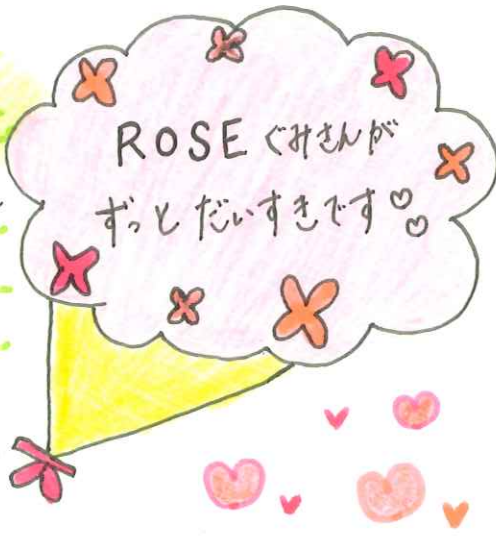 ROSEぐみさんが
ずっとだいすきです♡♡